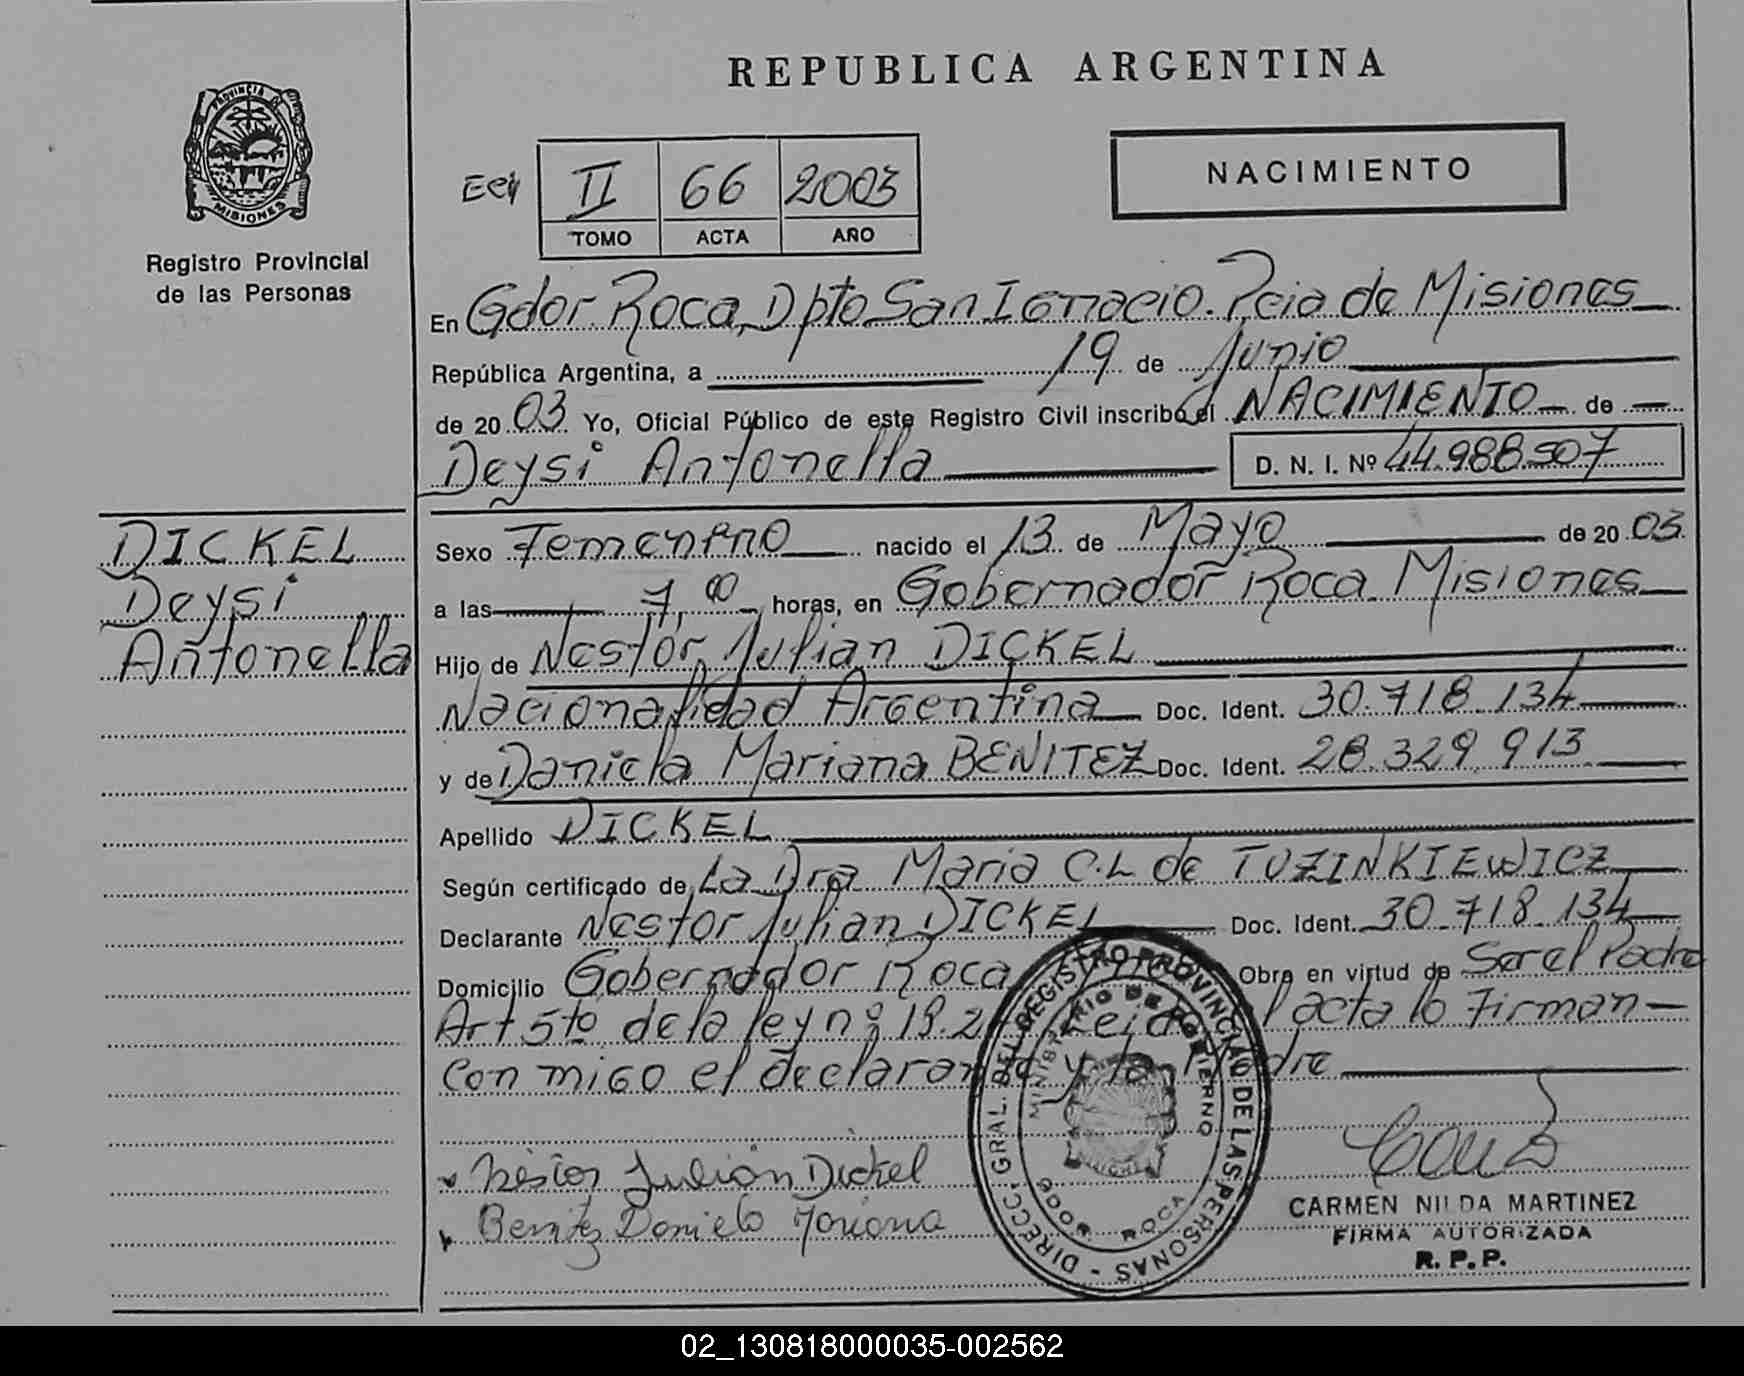 REPUBLICA ARGENTINA
PROVINCIA DE
MISIONES
Registro Provincial
de las Personas
NACIMIENTO
II 66 2003
TOMO ACTA AÑO
En Gdor. Roca, Dpto San Ignacio. Pcia de Misiones
República Argentina, a 19 de Junio
de 2003 Yo, Oficial Público de este Registro Civil inscribo el NACIMIENTO de
Deysi Antonella D. N. I. Nº 44.988.507
DICKEL
Deysi
Antonella
Sexo Femenino nacido el 13 de Mayo de 2003
a las 7,00 horas, en Gobernador Roca. Misiones
Hijo de Nestor Julian DICKEL
Nacionalidad Argentina Doc. Ident. 30.718.134
y de Daniela Mariana BENITEZ Doc. Ident. 28.329.913
Apellido DICKEL
Según certificado de La Dra Maria C.L de TUZINKIEWICZ
Declarante Nestor Julian DICKEL Doc. Ident. 30.718.134
Domicilio Gobernador Roca Obra en virtud de Ser el Padre
Art 5to de la ley nº 18.2 Leida acta lo Firman
Con migo el declarante y la Madre
DIRECC. GRAL. DEL REGISTRO PROVINCIAL DE LAS PERSONAS
MINISTERIO DE GOBIERNO
GDOR ROCA
Néstor Julián Dickel
Benitez Daniela Mariana
CARMEN NILDA MARTINEZ
FIRMA AUTORIZADA
R. P. P.
02_130818000035-002562